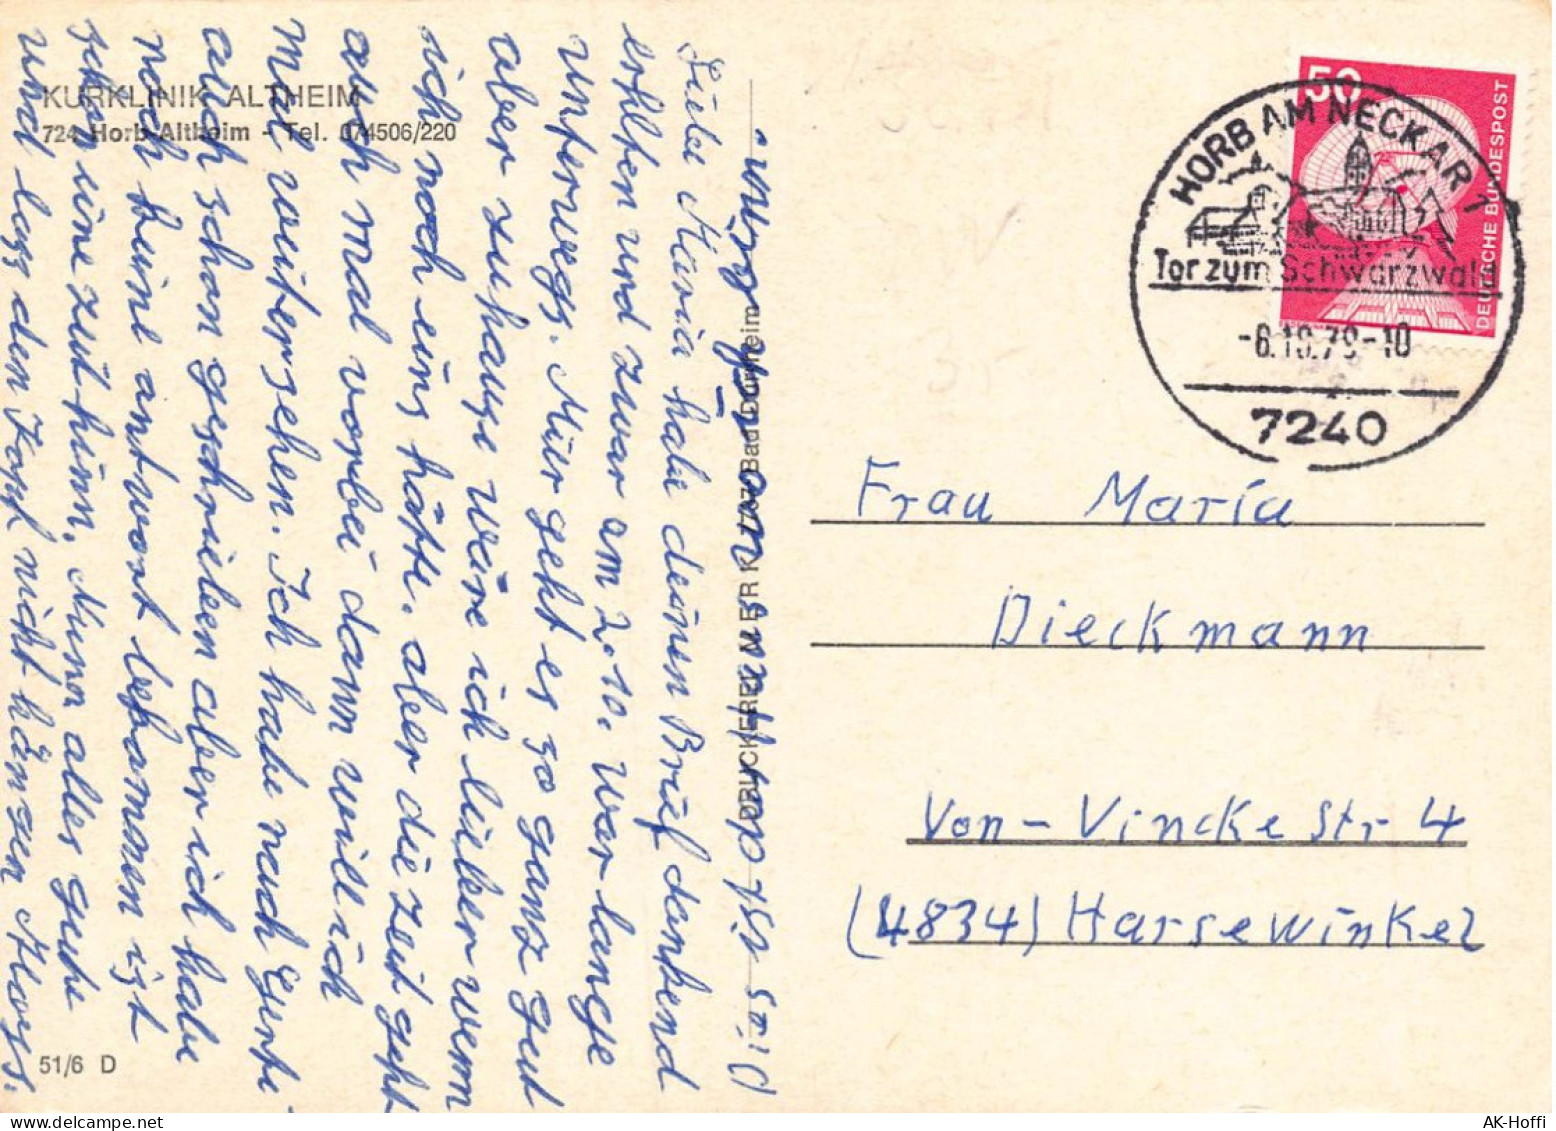 KURKLINIK ALTHEIM
724 Horb-Altheim - Tel. 074506/220
Liebe Maria habe deinen Brief dankend
erhlten und zwar am 2.10. War lange
Unterwegs. Mir geht es so ganz gut
aber zuhause wäre ich lieber wenn
ich noch eins hätte. aber die Zeit geht
auch mal vorbei dann will ich
Mal weitersehen. Ich habe nach
auch schon geschrieben aber ich habe
noch keine antwort bekommen ist
schon eine zeit hinn. Nunn alles gute
und lass den Kopf nicht hängen
51/6 D
DRUCKEREI Bad Dürrheim
50
DEUTSCHE BUNDESPOST
HORB AM NECKAR 1
Tor zum Schwarzwald
-6.10.79-10
7240
Frau Maria
Dieckmann
Von-Vincke Str 4
(4834) Harsewinkel
AK-Hoffi